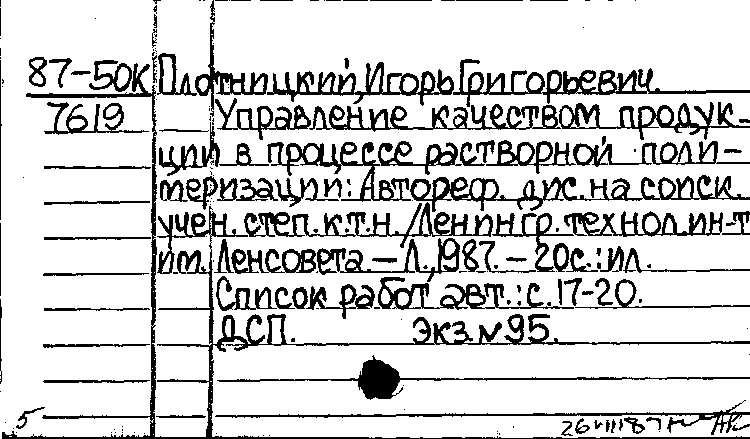 87-50К Плотницкий, Игорь Григорьевич.
7619 Управление качеством продук-
ции в процессе растворной поли-
меризации: Автореф. дис. на соиск.
учен. степ. к.т.н. /Ленингр. технол. ин-т
им. Ленсовета. – Л., 1987. – 20с.: ил.
Список работ авт.: с. 17-20.
ДСП. Экз. №95.
5